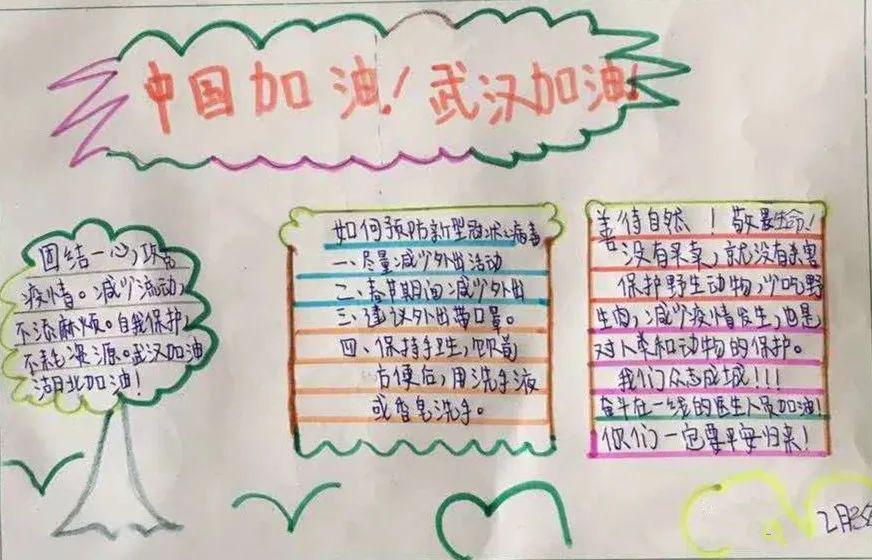 中国加油！武汉加油！
团结一心，攻击
疫情。减少流动，
不添麻烦。自我保护，
不耗资源。武汉加油
湖北加油！
如何预防新型冠状病毒
一、尽量减少外出活动
二、春节期间减少外出
三、建议外出带口罩。
四、保持手卫生，饮前
方便后，用洗手液
或香皂洗手。
善待自然！敬畏生命！
没有买卖，就没有杀害
保护野生动物，少吃野
生肉，减少疫情发生，也是
对人类和动物的保护。
我们众志成城！！！
奋斗在一线的医生人员加油！
你们一定要平安归来！
2月